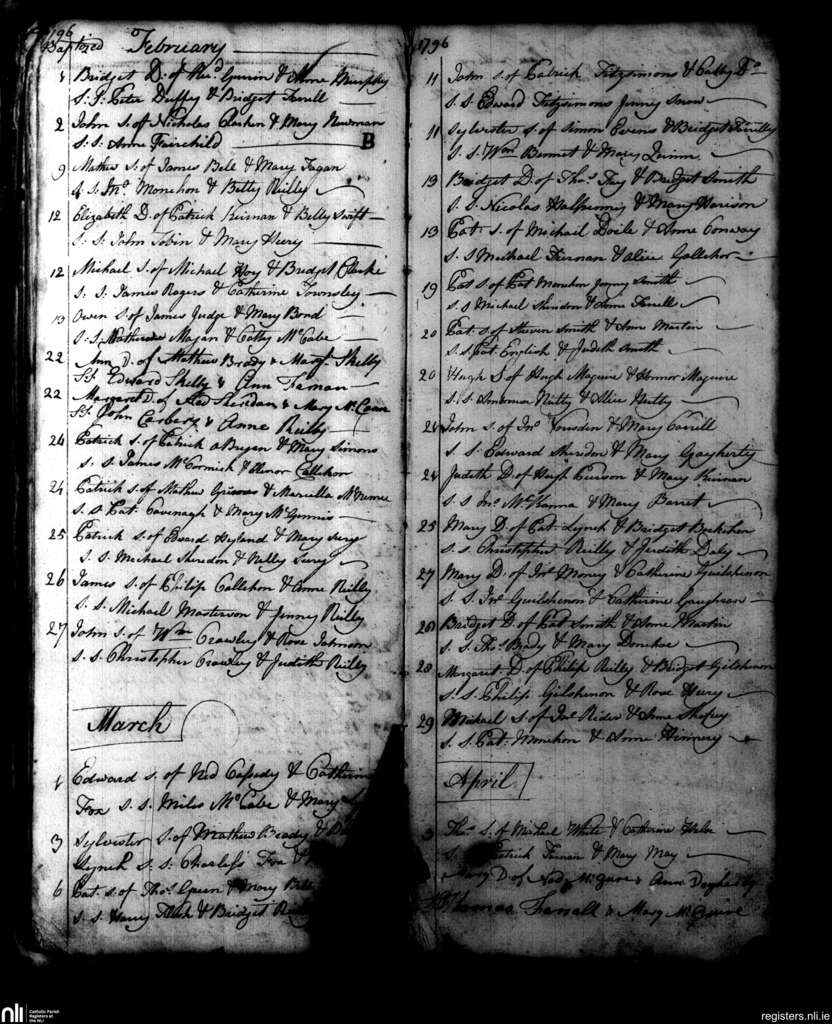 1796
Baptized February
1 Bridget D. of Rd. & Anne Murphy
S.S. Peter Duffey & Bridget Farell
2 John S. of Nicholas Clarken & Mary Newman
S.S. Anne Fairchild B
9 Mathew S. of James Bell & Mary Fagan
S.S. Jno. Monehon & Betty Reilly
12 Elizabeth D. of Patrick Kirnan & Betty Swift
S.S. John Tobin & Mary Heery
12 Michael S. of Michael Hoy & Bridget Clarke
S.S. James Rogers & Catherine Townsley
19 Owen S. of James Judge & Mary Bond
S.S. Mathew Magan & Catty McCabe
22 Ann D. of Mathew Brady & Mary Skelly
SS Edward Skelly & Ann
22 Margaret D. of Sheridan & Mary McCann
SS John Carberry & Anne Reilly
24 Patrick S. of Patrick oBryan & Mary Simons
S.S. James McCormick & Elenor Callehon
24 Patrick S. of Mathew & Mariella
S.S. Pat. Cavenagh & Mary McGinnis
25 Patrick S. of Edward Hyland & Mary
S.S. Michael Sheredon & Nelly
26 James S. of Philip Callehon & Anne Reilly
S.S. Michael Masterson & Jenney Reilly
27 John S. of Wm Crawley & Rose Johnson
S.S. Christopher Crawley & Judith Reilly
March
1 Edward S. of Ned Cassedy & Catherine
Fox S.S. Miles McCabe & Mary
3 Sylvester S. of Mathew Brady &
Lynch S.S. Charles Fox &
6 Pat. S. of Thos. Green & Mary
S.S. Harry & Bridget
1796
11 John S. of Patrick Fitzsimons & Catty Do
S.S. Edward Fitzsimons Jenny Snow
11 Sylvester S. of Simon Evens & Bridget
S.S. Wm Bennet & Mary Quinn
13 Bridget D. of Thos. Fay & Bridget Smith
S.S. Nicolas & Mary Harison
13 Pat. S. of Michael Doile & Anne Conway
S.S. Michael Fiernan & Alice Gallehor
19 Pat S. of Pat Monehon Jenny Smith
S.S. Michael Sheridon & Anne Farell
20 Pat. S. of Steven Smith & Anne Martin
S.S. Pat. English & Judith Smith
20 Hugh S. of Hugh Maguire & Honnor Maguire
S.S. Nulty & Alice Nulty
24 John S. of Jno. & Mary Carrill
S.S. Edward Sheridon & Mary Gagherty
24 Judith D. of Hugh & Mary Kirnan
S.S. Jno. McKanna & Mary Barret
25 Mary D. of Pat. Lynch & Bridget
S.S. Christopher Reilly & Judith Daly
27 Mary D. of Jno. Money & Catherine
S.S. Jno. & Catherine Gaughran
28 Bridget D. of Pat Smith & Anne Martin
S.S. Thos. Brady & Mary Donohoe
28 Margaret D. of Philip Reilly & Bridget Gilchenon
S.S. Philip Gilchenon & Rose Heery
29 Michael S. of Jno. Rider & Anne
S.S. Pat. Monehon & Anne
April
3 Thos. S. of Michael White & Catherine
S. Patrick & Mary May
Mary D. of & Ann Dogherty
Thomas Farrell & Mary McGuire
nli
Catholic Parish
Registers at
the NLI
registers.nli.ie